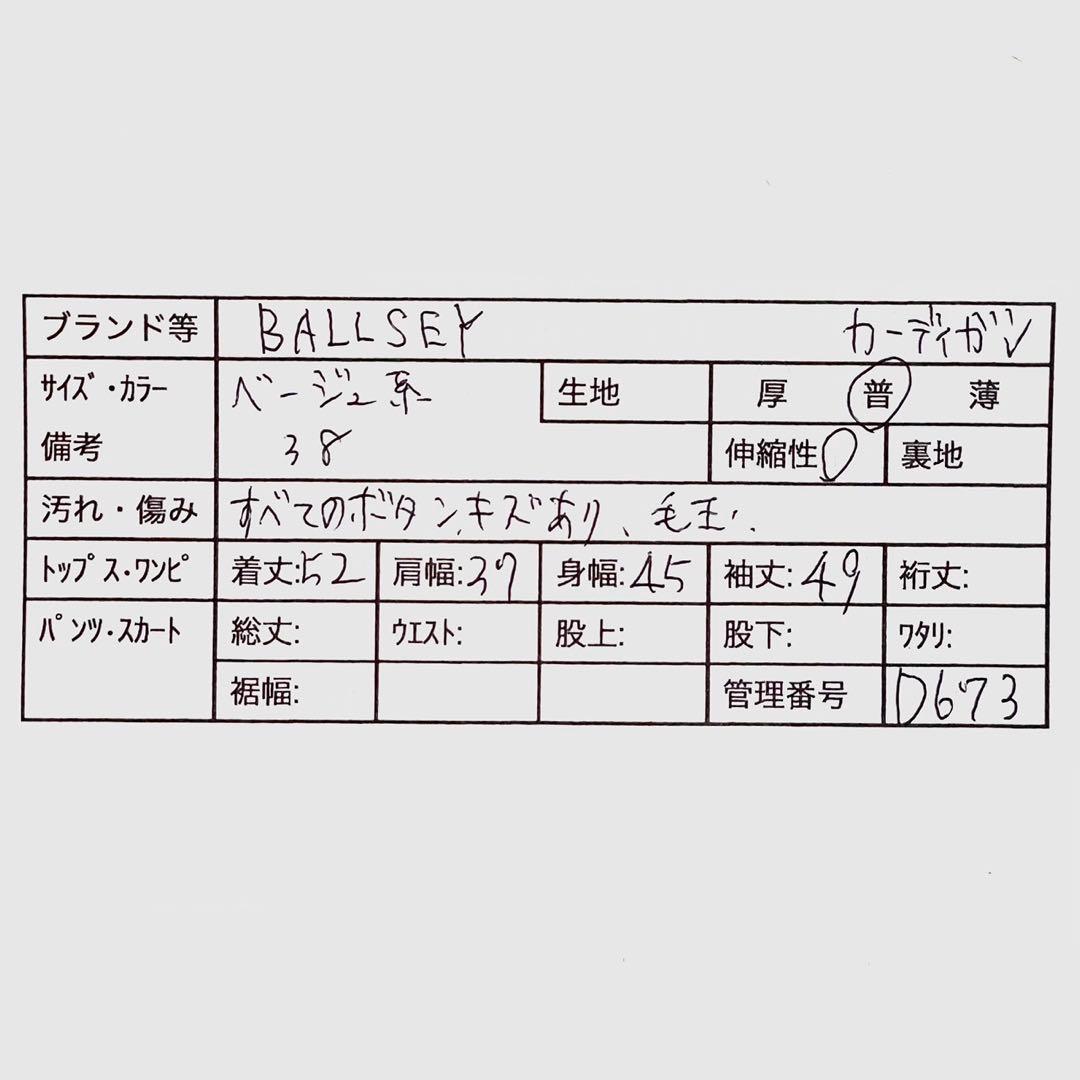 ブランド等 BALLSEY カーディガン
サイズ・カラー ベージュ系 生地 厚 普 薄
備考 38 伸縮性○ 裏地
汚れ・傷み すべてのボタン、キズあり、毛玉、、
トップス・ワンピ 着丈:52 肩幅:37 身幅:45 袖丈:49 裄丈:
パンツ・スカート 総丈: ウエスト: 股上: 股下: ワタリ:
裾幅: 管理番号 D673